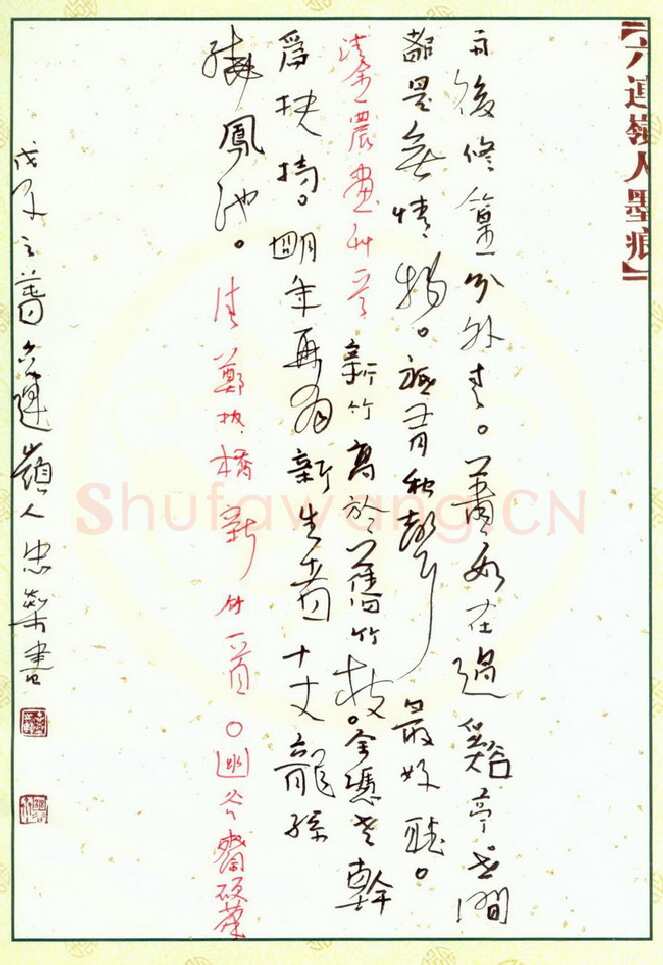 【六連嶺人墨痕】
雨後修篁分外青。蕭如在過谿亭世間
都是無情物。祗有秋聲最好聽。
清金農畫竹 新竹高於舊竹枝。全憑老幹
為扶持。明年再有新生者十丈龍孫
繞鳳池。清鄭板橋新竹一首。幽谷齋
戊子之 六連嶺人忠榮書
Shufawang.CN